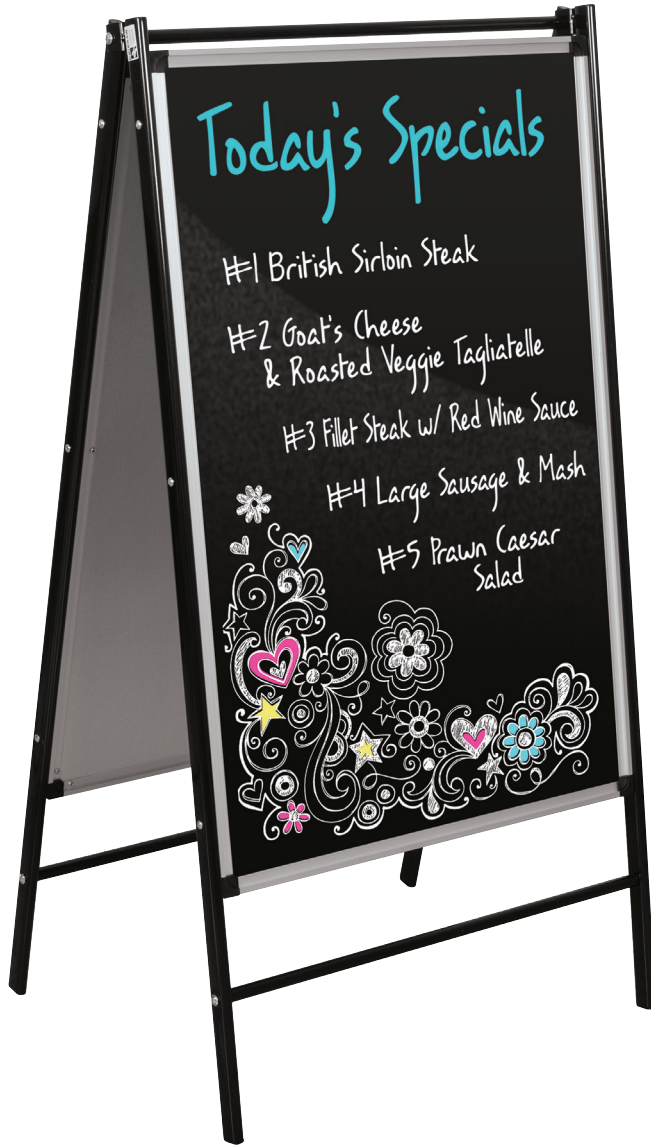 Today's Specials
#1 British Sirloin Steak
#2 Goat's Cheese
& Roasted Veggie Tagliatelle
#3 Fillet Steak w/ Red Wine Sauce
#4 Large Sausage & Mash
#5 Prawn Caesar
Salad